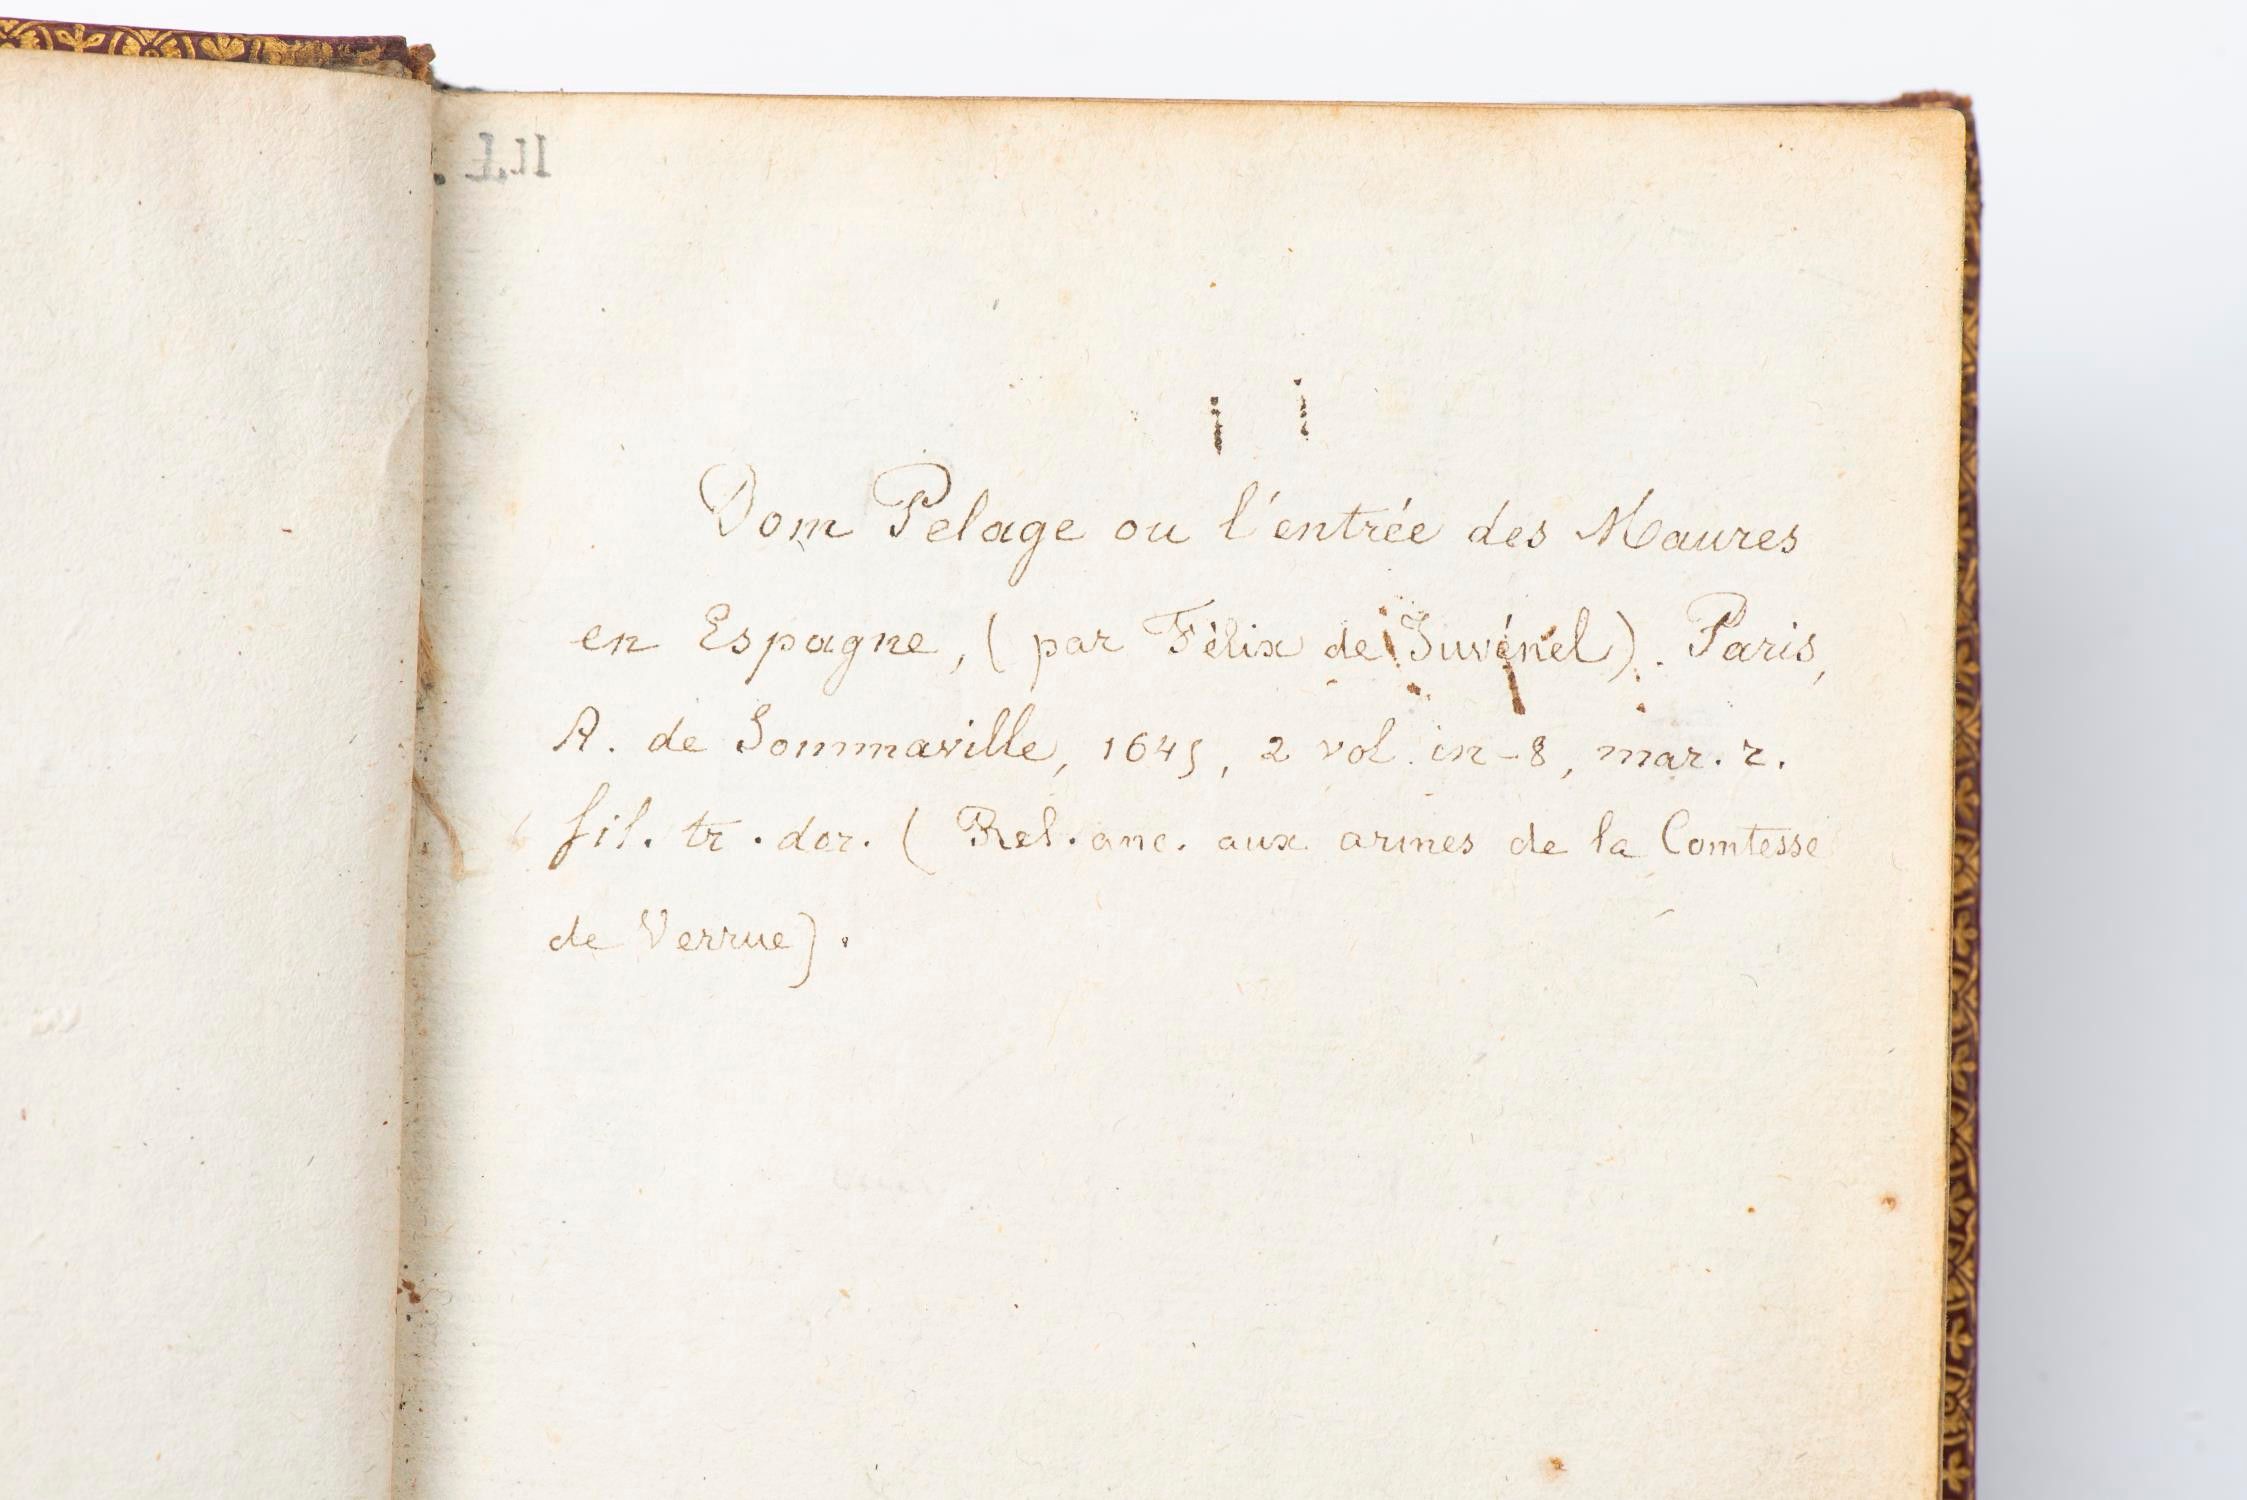 Dom Pelage ou l'entrée des Maures
en Espagne, (par Félix de Juvénel). Paris,
A. de Sommaville, 1645, 2 vol. in-8, mar. r.
fil. tr. dor. (Rel. anc. aux armes de la Comtesse
de Verrue).